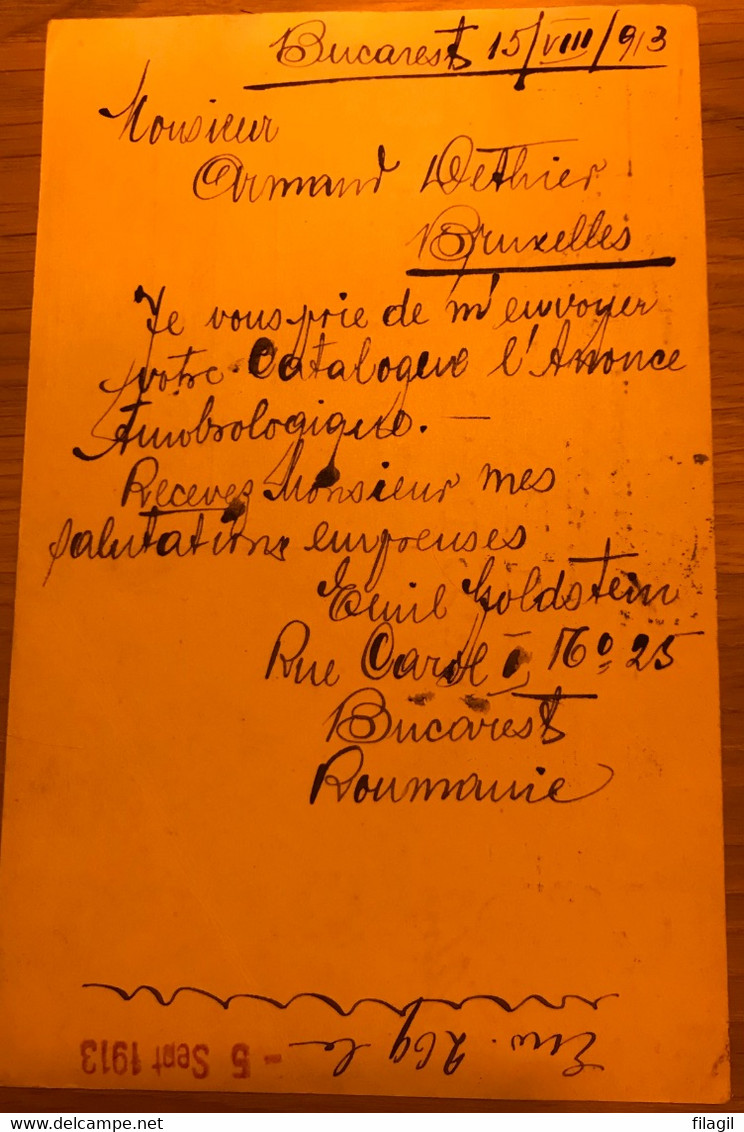 Bucarest 15/VIII/913
Monsieur
Armand Dethier
Bruxelles
Je vous prie de m'envoyer
votre Catalogue l'Anonce
Timbrologique. —
Receves Monsieur mes
salutations empreuses
Emil Goldstein
Rue Carol I No 25
Bucarest
Roumanie
Env. 269 le - 5 Sept 1913
filagil